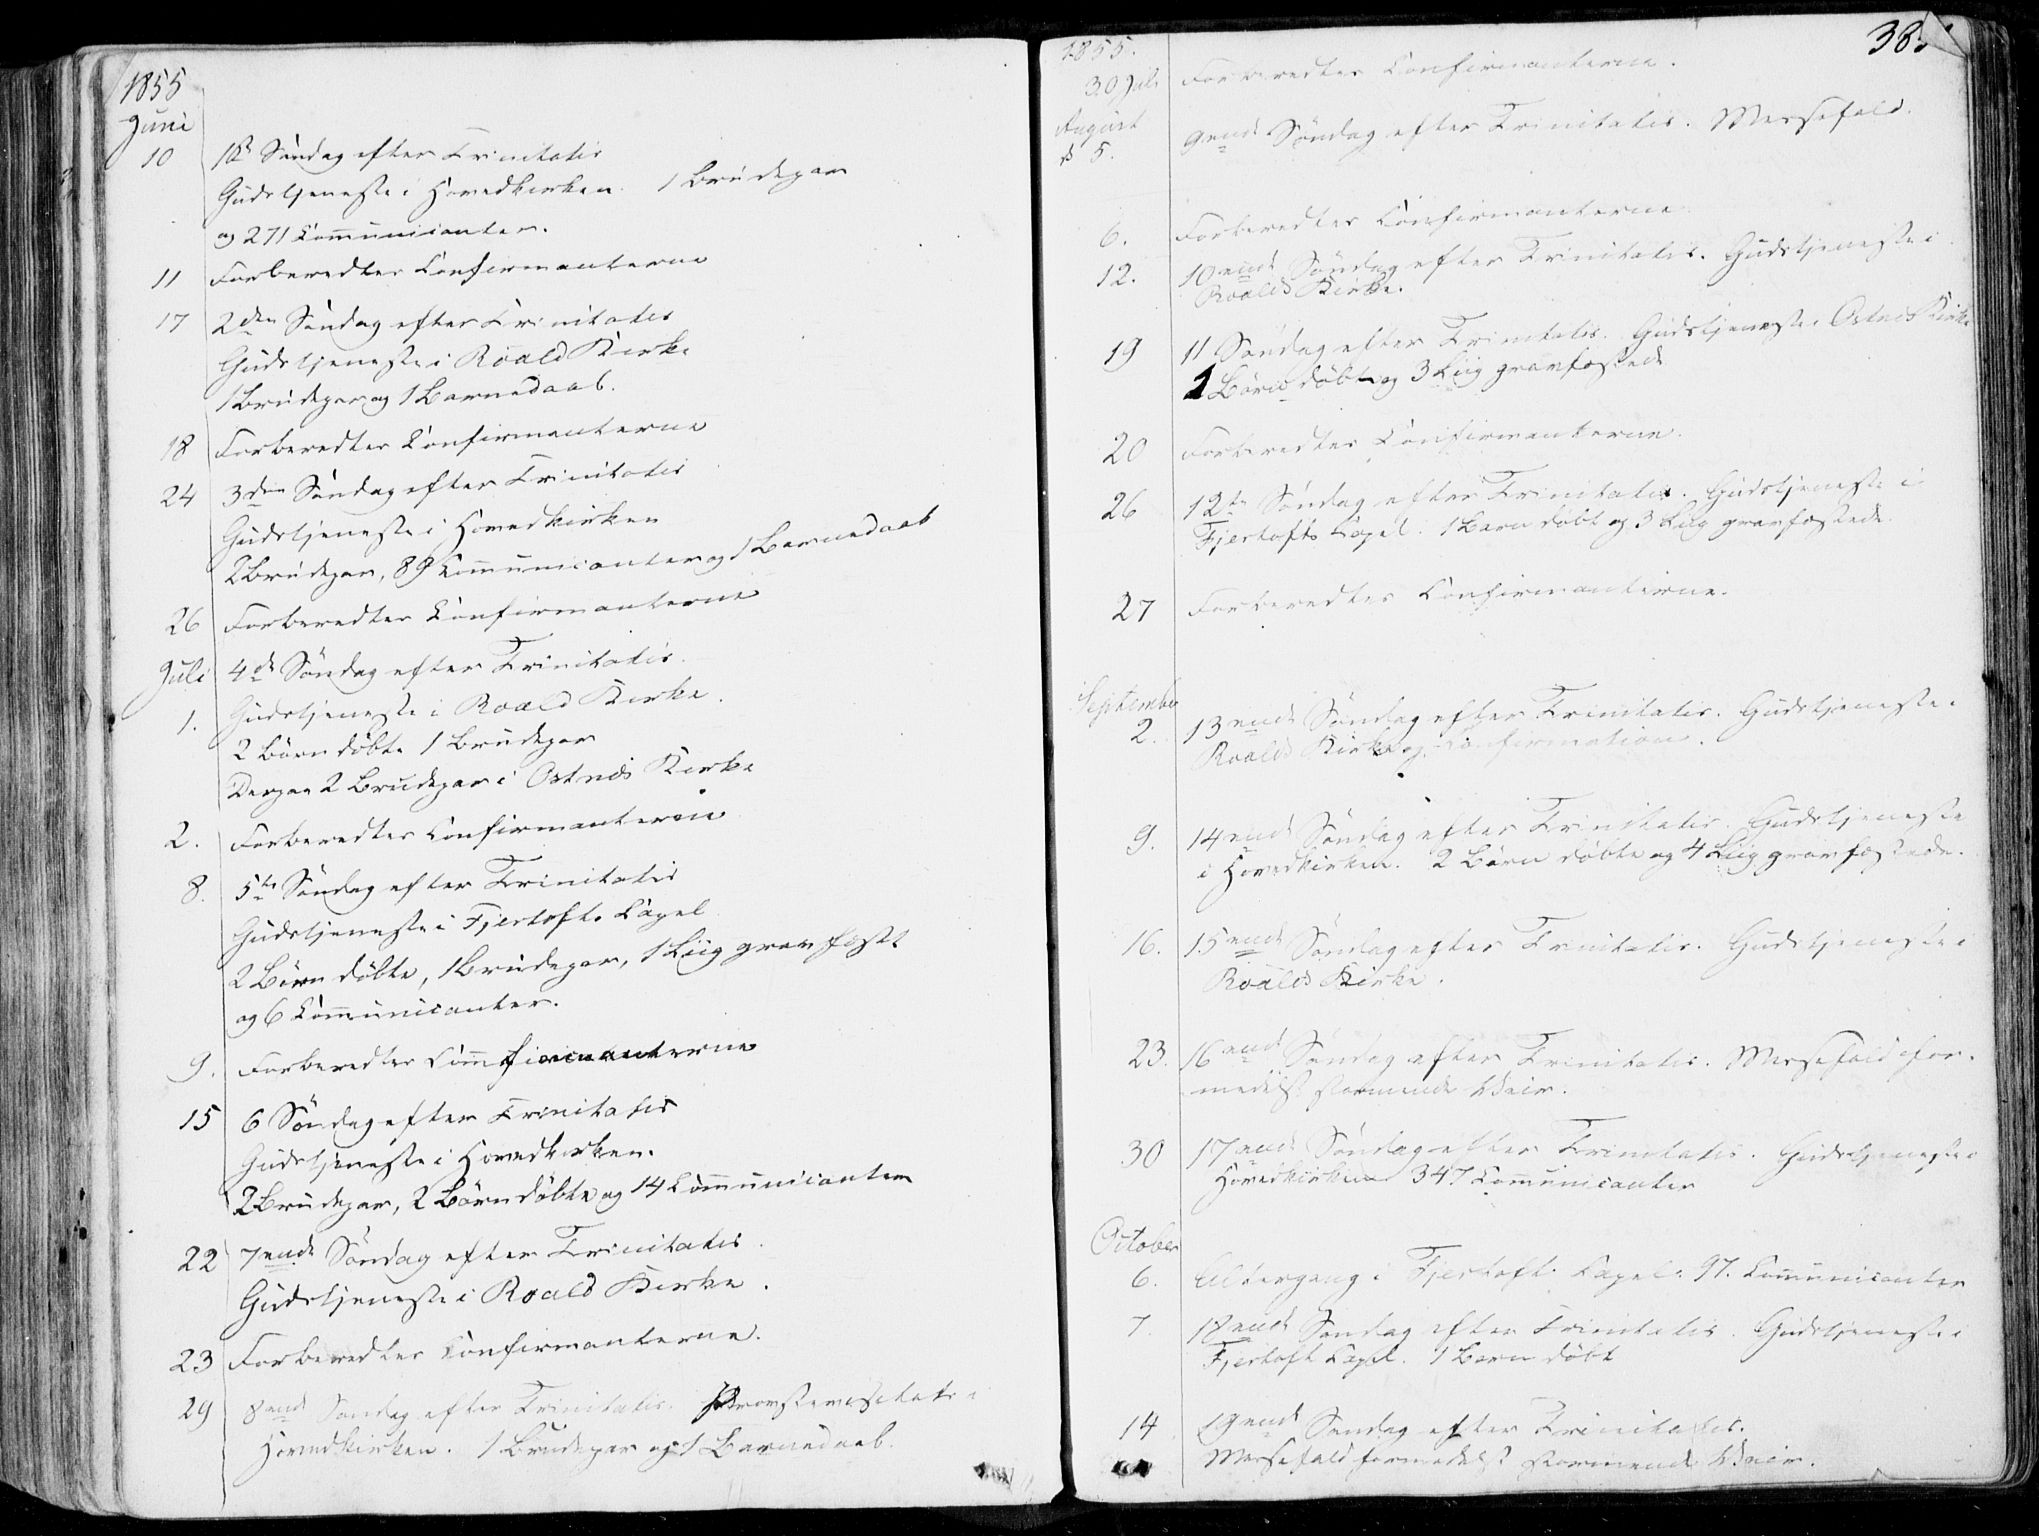 1855
Juni
10 1ste Søndag efter Trinitatis
Gudstjeneste i Hovedkirken. 1 Brudepar
og 271 Communicanter.
11 Forberedtes Confirmanterne
17 2den Søndag efter Trinitatis
Gudstjeneste i Roald Kirke
1 Brudepar og 1 Barnedaab.
18 Forberedtes Confirmanterne
24 3die Søndag efter Trinitatis
Gudstjeneste i Hovedkirken
2 Brudepar, 89 Communicanter og 1 Barnedaab
26 Forberedtes Confirmanterne
Juli 4de Søndag efter Trinitatis.
1. Gudstjeneste i Roald Kirke.
2 Børn døbte 1 Brudepar
Derpaa 2 Brudepar i Ostnæs Kirke
2. Forberedtes Confirmanterne
8. 5te Søndag efter Trinitatis
Gudstjeneste i Fjertofts Capel
2 Børn døbte, 1 Brudepar, 1 Liig gravfæstet
og 6 Communicanter.
9. Forberedtes Comfirmanterne
15 6 Søndag efter Trinitatis
Gudstjeneste i Hovedkirken.
2 Brudepar, 2 Børn døbte og 14 Communicanter
22 7ende Søndag efter Trinitatis.
Gudstjeneste i Roald Kirke.
23 Forberedtes Confirmanterne.
29 8ende Søndag efter Trinitatis. Provstevisitats i
Hovedkirken. 1 Brudepar og 1 Barnedaab.
1855. 385
30 Juli Forberedtes Confirmanterne.
August
d 5. 9ende Søndag efter Trinitatis. Messefald.
6. Forberedtes Confirmanterne
12. 10ende Søndag efter Trinitatis. Gudstjeneste i
Roalds Kirke.
19 11 Søndag efter Trinitatis. Gudstjeneste i Ostnæs Kirke
1 Børn døbt og 3 Liig gravfæstede
20 Forberedtes Confirmanterne.
26 12te Søndag efter Trinitatis. Gudstjeneste i
Fjertofts Capel. 1 Barn døbt og 3 Liig gravfæstede.
27 Forberedtes Confirmanterne.
September
2. 13ende Søndag efter Trinitatis. Gudstjeneste i
Roalds Kirke og Confirmation.
9. 14ende Søndag efter Trinitatis. Gudstjeneste
i Hovedkirken. 2 Børn døbte og 4 Liig gravfæstede.
16. 15ende Søndag efter Trinitatis. Gudstjeneste i
Roalds Kirke.
23. 16ende Søndag efter Trinitatis. Messefald for-
medelst stormende Veir.
30 17ende Søndag efter Trinitatis. Gudstjeneste i
Hovedkirken 347 Communicanter
October
6. Altergang i Fjertoft Capel. 97. Communicanter
7. 18ende Søndag efter Trinitatis. Gudstjeneste i
Fjertoft Capel. 1 Barn døbt
14 19ende Søndag efter Trinitatis.
Messefald formedelst stormende Veir.